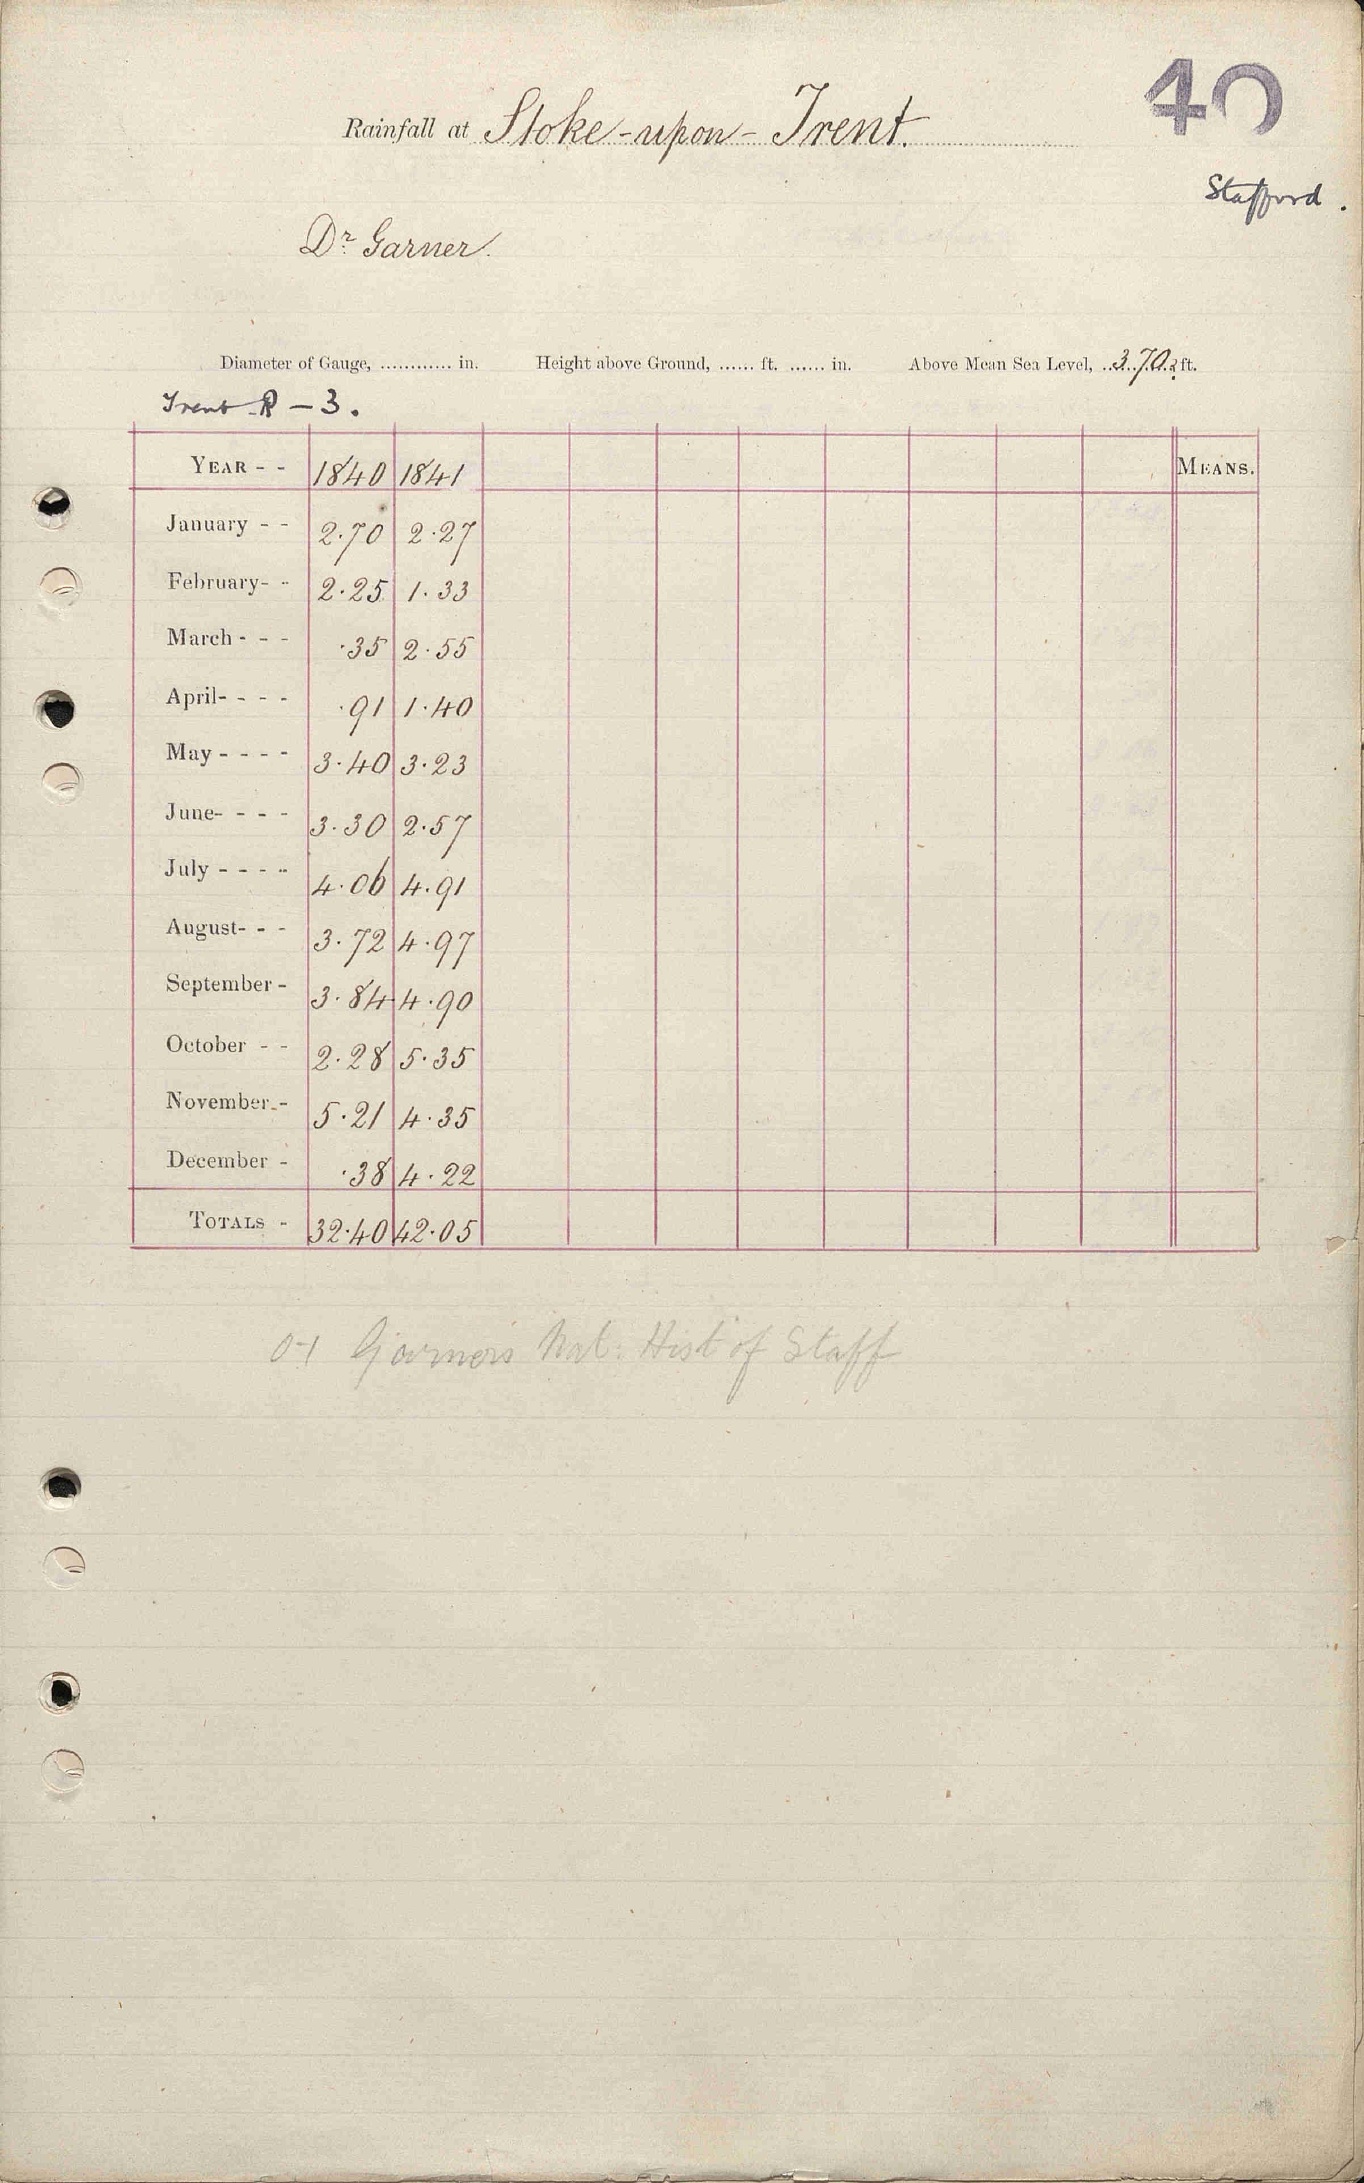 40
Rainfall at Stoke-upon-Trent.
Stafford.
Dr. Garner.
Diameter of Gauge, ............ in. Height above Ground, ...... ft. ...... in. Above Mean Sea Level, ..370? ft.
Trent R - 3.
YEAR - - 1840 1841 MEANS.
January - - 2.70 2.27
February- - 2.25 1.33
March - - - .35 2.55
April- - - - .91 1.40
May - - - - 3.40 3.23
June- - - - 3.30 2.57
July - - - - 4.06 4.91
August- - - 3.72 4.97
September - 3.84 4.90
October - - 2.28 5.35
November - 5.21 4.35
December - .38 4.22
TOTALS - 32.40 42.05
Garners Nat. Hist of Staff